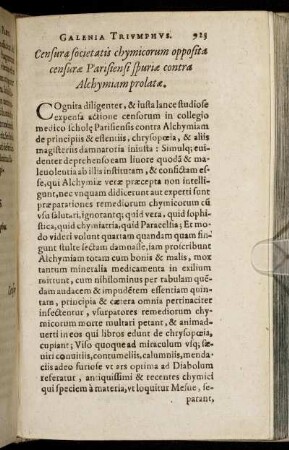 GALENIA TRIVMPHVS. 923
Censura societatis chymicorum opposita
censuræ Parisiensi spuriæ contra
Alchymiam prolatæ.
COgnita diligenter, & iusta lance studiose
expensa actione censorum in collegio
medico scholę Parisiensis contra Alchymiam
de principiis & essentiis, chrysopœia, & aliis
magisteriis damnatoria iniusta: Simulq; eui-
denter deprehenso eam liuore quodã & ma-
leuolentia ab illis institutam, & confictam es-
se, qui Alchymiæ veræ præcepta non intelli-
gunt, nec vnquam didicerunt aut experti sunt
præparationes remediorum chymicorum cũ
vsu salutari, ignorantq; quid vera, quid sophi-
stica, quid chymiatria, quid Paracelsia; Et mo-
do videri volunt quartam quandam quam fin-
gunt stulte sectam damnasse, iam proscribunt
Alchymiam totam cum bonis & malis, mox
tantum mineralia medicamenta in exilium
mittunt, cum nihilominus per tabulam quẽ-
dam audacem & impudẽtem essentiam quin-
tam, principia & cætera omnia pertinaciter
insectentur, vsurpatores remediorum chy-
micorum morte multari petant, & animad-
uerti in eos qui libros edunt de chrysopœia,
cupiant; Viso quoque ad miraculum vsq; sę-
uiri conuitiis, contumeliis, calumniis, menda-
ciis adeo furiose vt ars optima ad Diabolum
referatur, antiquissimi & recentes chymici
qui speciem à materia, vt loquitur Mesue, se-
parant,